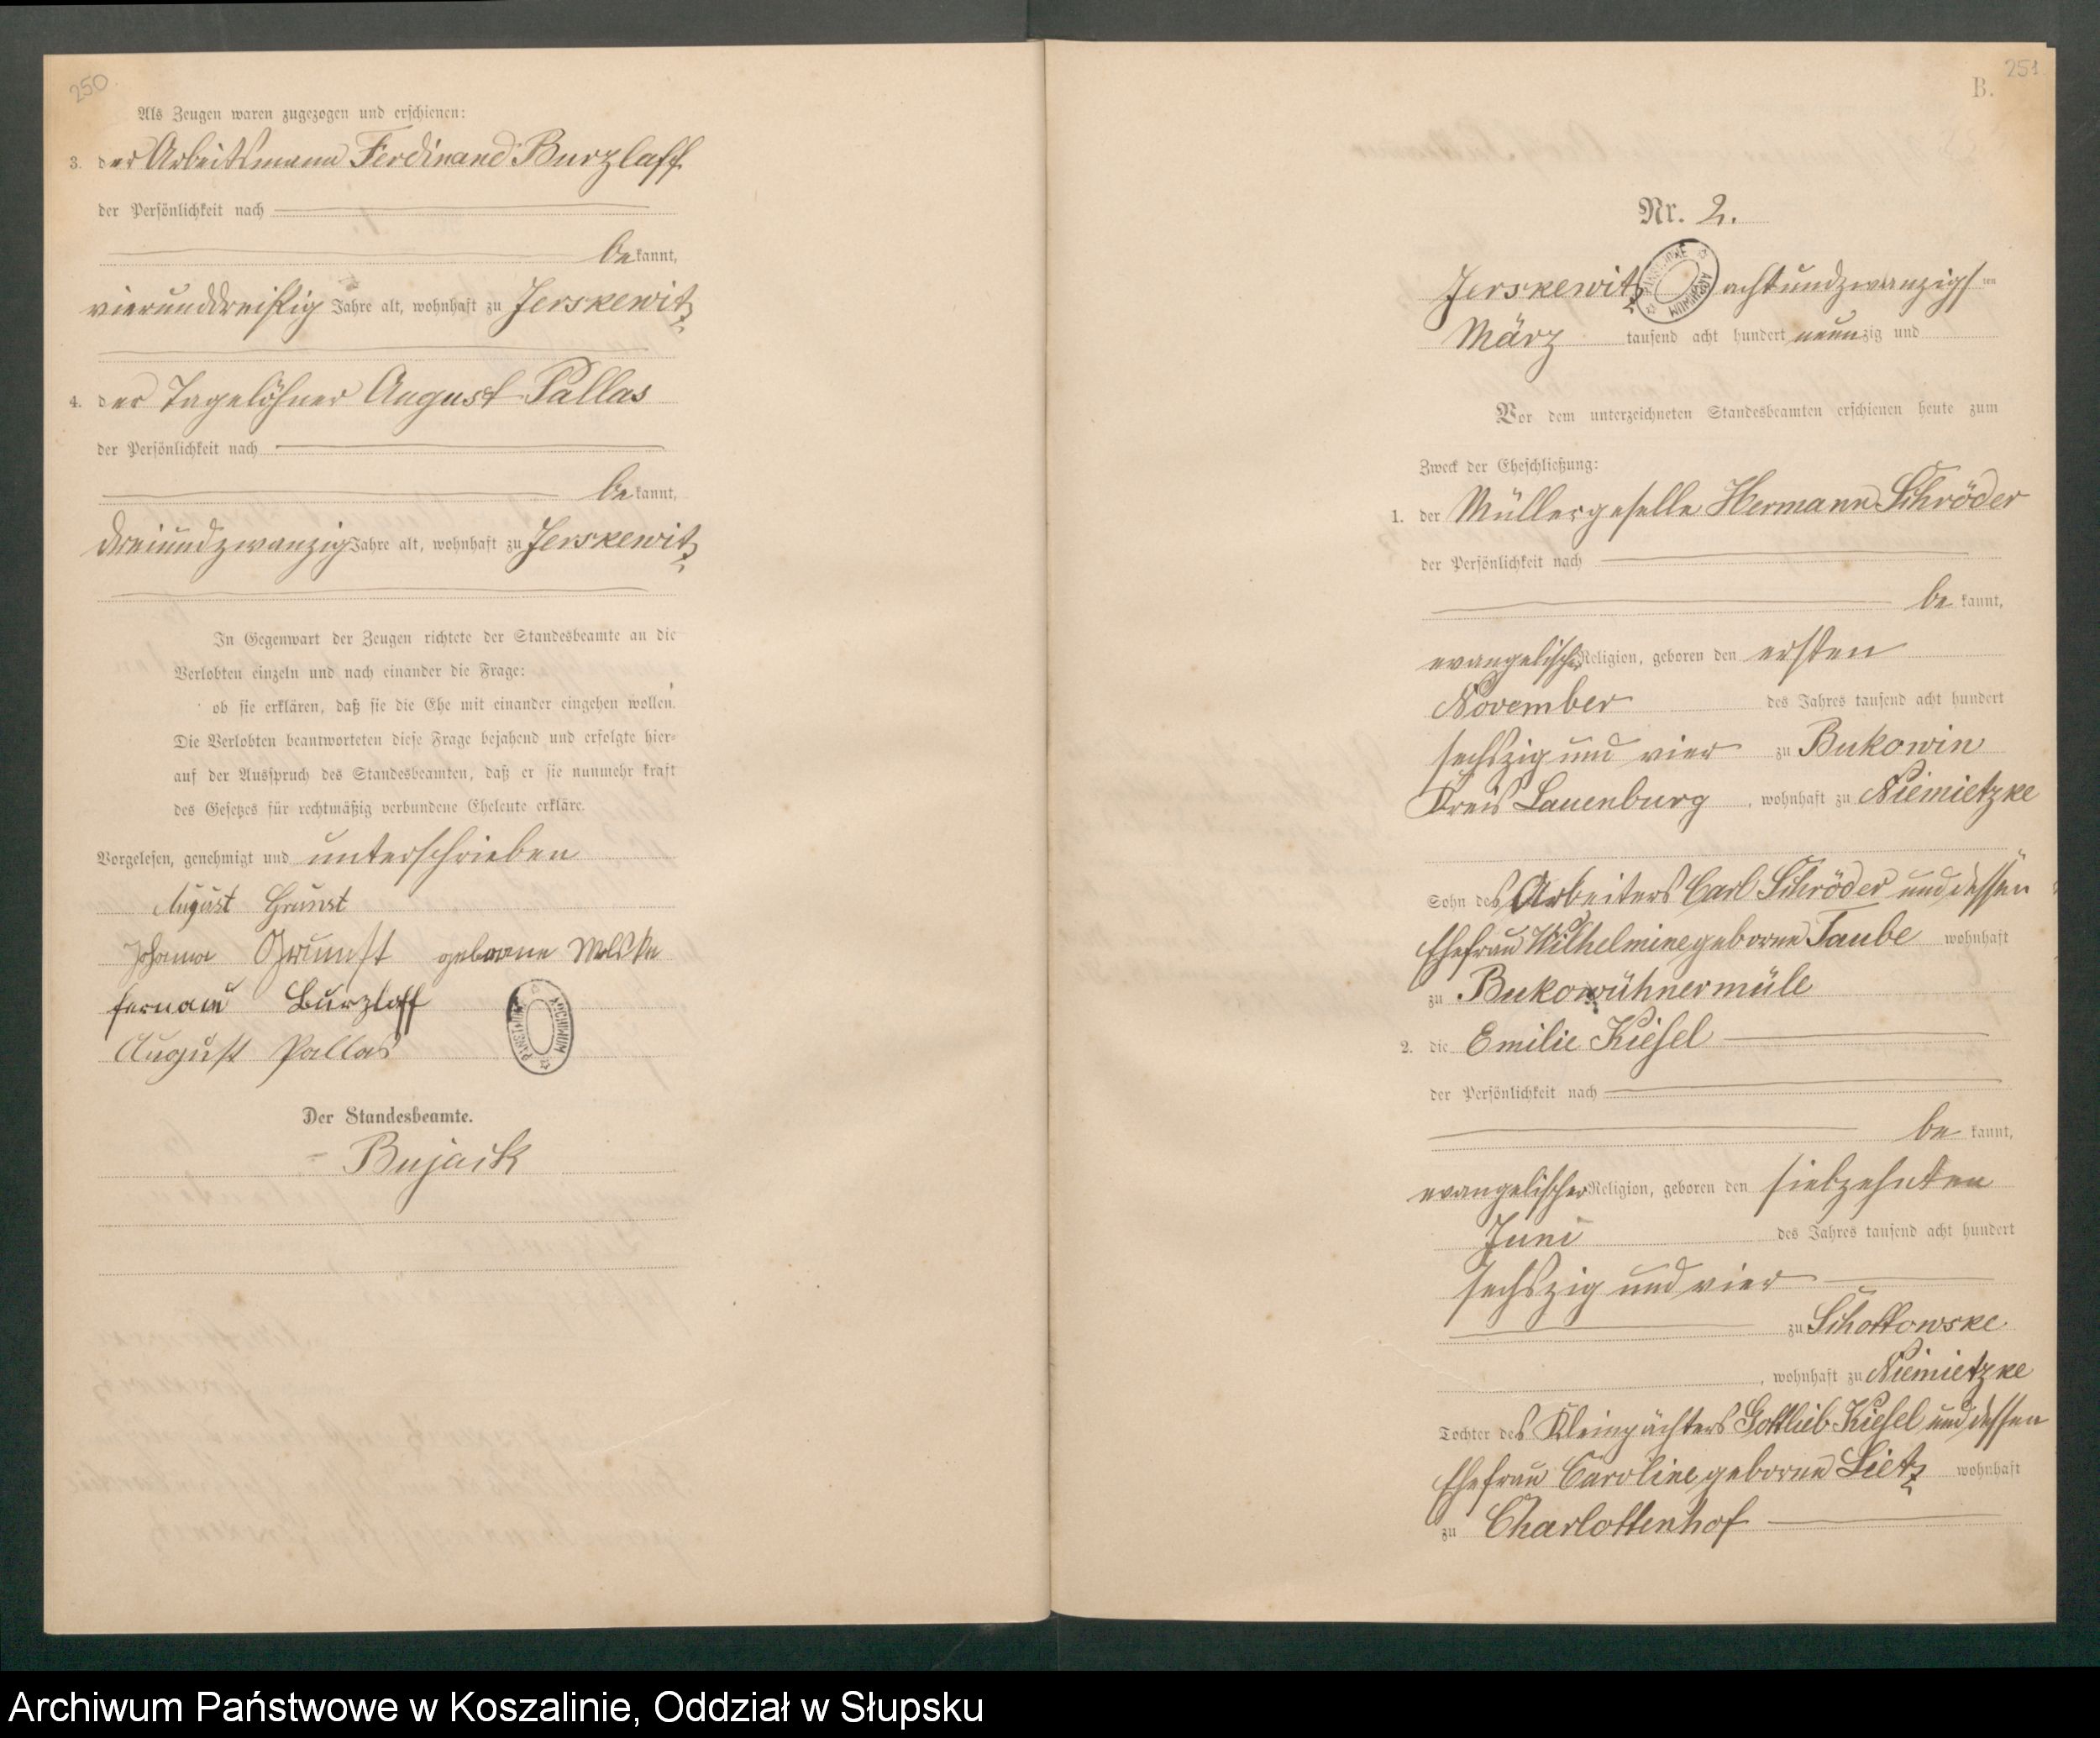 250
Als Zeugen waren zugezogen und erschienen:
3. der Arbeitsmann Ferdinand Burzlaff
der Persönlichkeit nach
be kannt,
vierunddreißig Jahre alt, wohnhaft zu Jerskewitz
4. der Tagelöhner August Pallas
der Persönlichkeit nach
be kannt,
dreiundzwanzig Jahre alt, wohnhaft zu Jerskewitz
In Gegenwart der Zeugen richtete der Standesbeamte an die
Verlobten einzeln und nach einander die Frage:
ob sie erklären, daß sie die Ehe mit einander eingehen wollen.
Die Verlobten beantworteten diese Frage bejahend und erfolgte hier-
auf der Ausspruch des Standesbeamten, daß er sie nunmehr kraft
des Gesetzes für rechtmäßig verbundene Eheleute erkläre.
Vorgelesen, genehmigt und unterschrieben
August Grunst
Johanna Grunst geborne
Burzlaff
August Pallas
ARCHIWUM
Der Standesbeamte.
Bujack
251
B.
Nr. 2.
Jerskewitz achtundzwanzigsten
März tausend acht hundert neunzig und
ARCHIWUM
Vor dem unterzeichneten Standesbeamten erschienen heute zum
Zweck der Eheschließung:
1. der Müllergeselle Hermann Schröder
der Persönlichkeit nach
be kannt,
evangelischer Religion, geboren den ersten
November des Jahres tausend acht hundert
sechszig und vier zu Bukowin
Kreis Lauenburg, wohnhaft zu Niemietzke
Sohn des Arbeiters Carl Schröder und dessen
Ehefrau Wilhelmine geborne Taube wohnhaft
zu Bukowühnermüle
2. die Emilie Kiesel
der Persönlichkeit nach
be kannt,
evangelischer Religion, geboren den siebzehnten
Juni des Jahres tausend acht hundert
sechszig und vier
zu Schottowske
, wohnhaft zu Niemietzke
Tochter des Kleinpächters Gottlieb Kiesel und dessen
Ehefrau Caroline geborne Lietz wohnhaft
zu Charlottenhof
Archiwum Państwowe w Koszalinie, Oddział w Słupsku